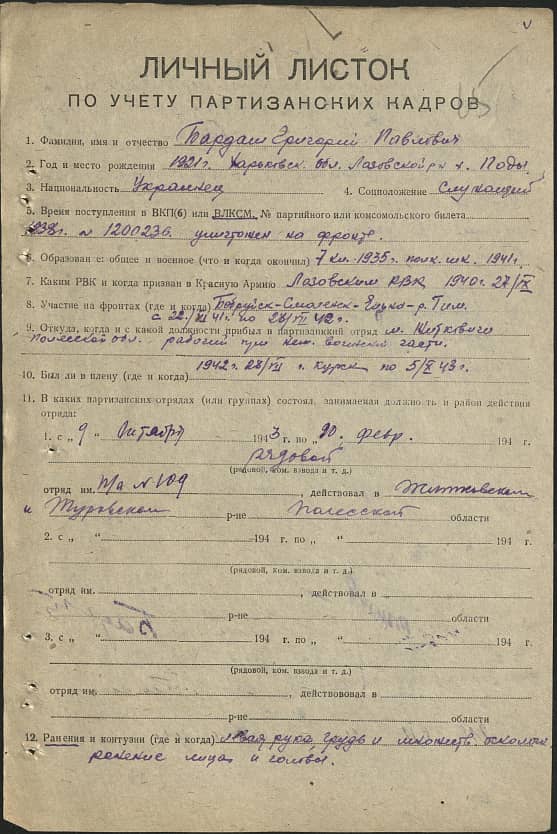 ЛИЧНЫЙ ЛИСТОК
ПО УЧЕТУ ПАРТИЗАНСКИХ КАДРОВ
1. Фамилия, имя и отчество Бардаш Григорий Павлович
2. Год и место рождения 1921 г. Харьковск. обл. Лазовской р-н х. Поды.
3. Национальность Украинец 4. Соцположение Служащий
5. Время поступления в ВКП(б) или ВЛКСМ, № партийного или комсомольского билета
1938г. № 1200236. уничтожен на фронте.
6. Образование: общее и военное (что и когда окончил) 7 кл. 1935г. полк. шк. 1941г.
7. Каким РВК и когда призван в Красную Армию Лазовским РВК 1940г. 27/IX
8. Участие на фронтах (где и когда) Бобруйск-Смоленск- р. Тим.
с 22/VI 41г. по 28/VI 42г.
9. Откуда, когда и с какой должности прибыл в партизанский отряд м. Житковичи
Полесской обл. рабочий при нем. воинской части.
10. Был ли в плену (где и когда) 1942г. 28/VI г. Курск по 5/X 43г.
11. В каких партизанских отрядах (или группах) состоял, занимаемая должность и район действия
отряда:
1. с „ 9 „ Октября 1943 г. по „20„ февр. 194 г.
рядовой
(рядовой, ком. взвода и т. д.)
отряд им. п/о №109, действовал в Житковском
и Туровском р-не Полесской области
2. с „ “ 194 г. по „ “ 194 г.
(рядовой, ком. взвода и т. д.)
отряд им. , действовал в
р-не области
3. с „ “ 194 г. по „ “ 194 г.
(рядовой, ком. взвода и т. д.)
отряд им. , действововал в
р-не области
12. Ранения и контузии (где и когда) левая рука, грудь и множеств. осколоч.
ранение лица и головы.